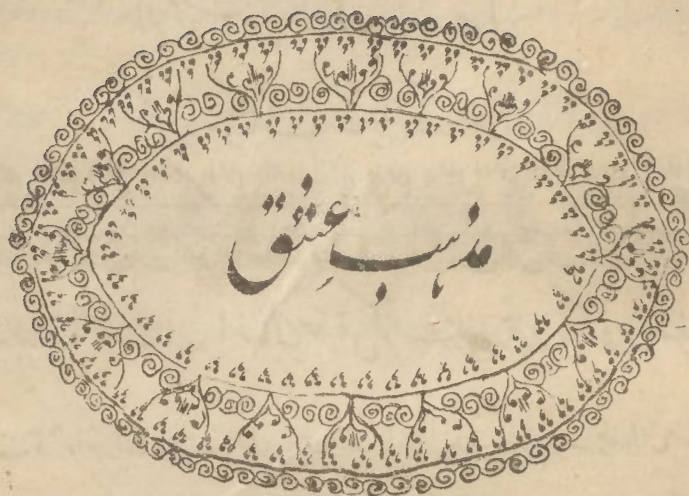 مذہب عشق